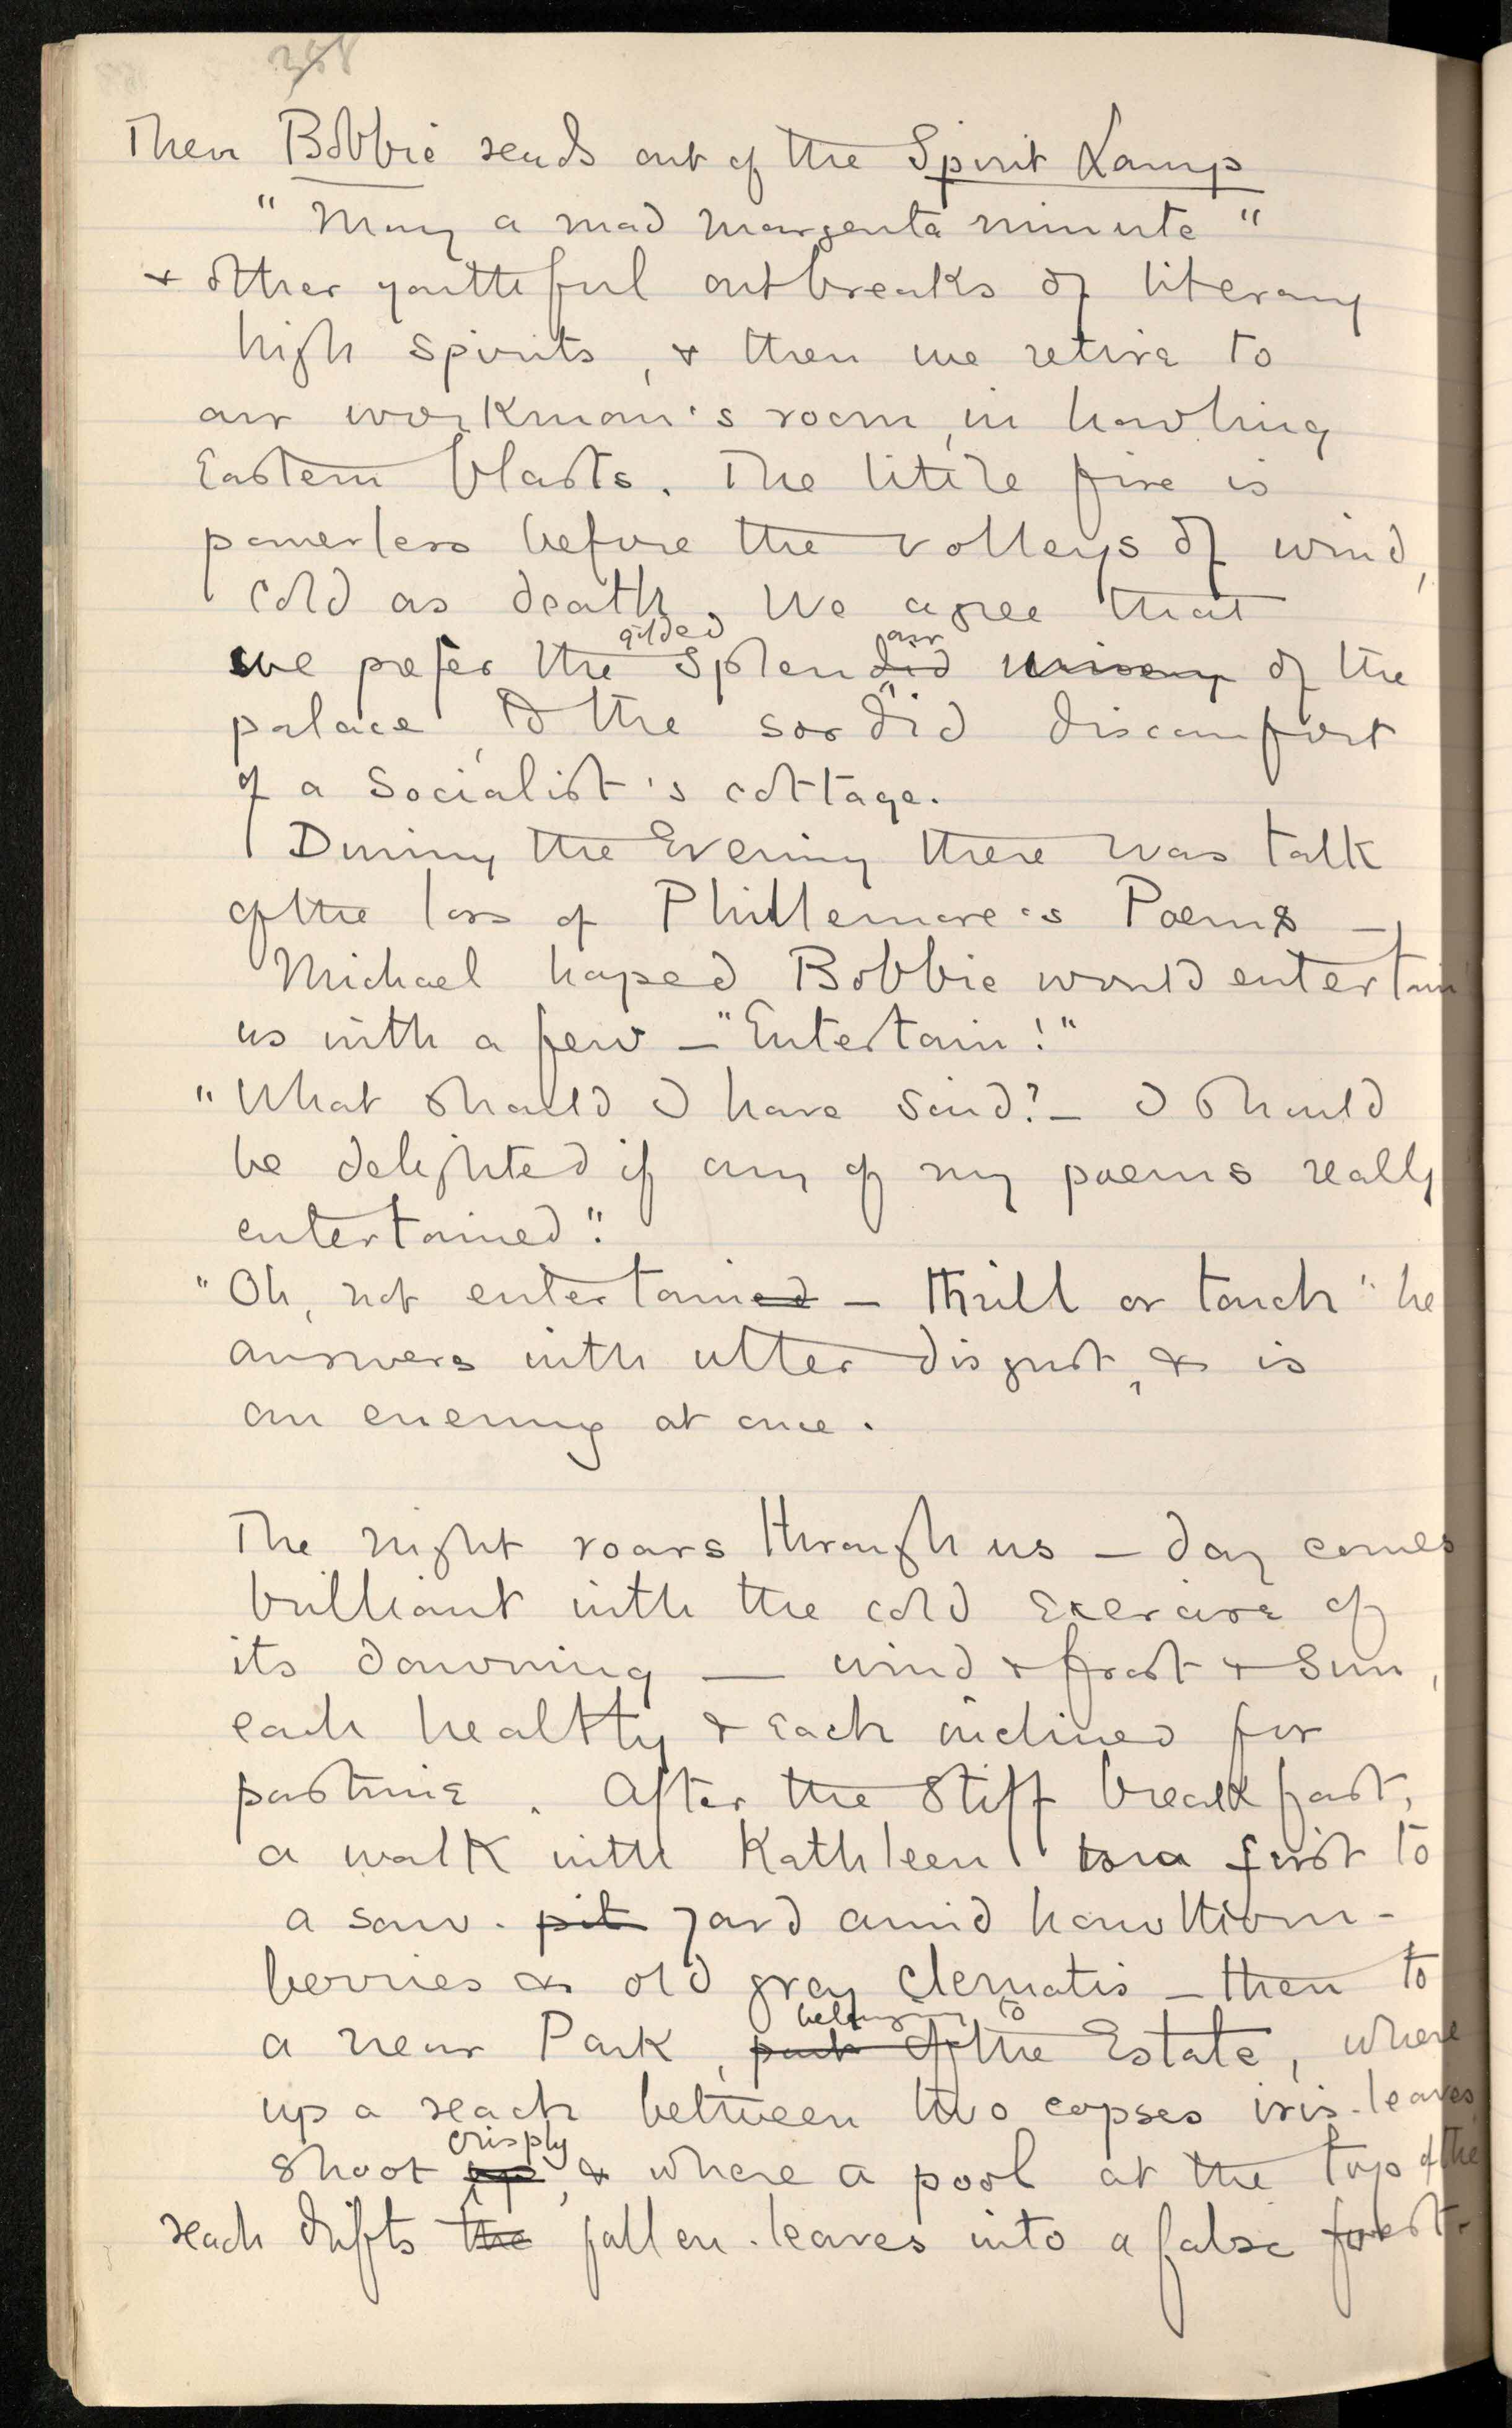 358
Then Bobbie reads out of the Spirit Lamp
"Many a mad magenta minute"
& other youthful outbreaks of literary
high spirits, & then we retire to
our workman's room, in howling
Eastern blasts. The little fire is
powerless before the volleys of wind,
cold as death. We agree that
gilded our
we prefer the Splendid misery of the
palace, to the sordid discomfort
of a Socialist's cottage.
During the Evening there was talk
of the loss of Phillemore's Poems —
Michael hoped Bobbie would entertain
us with a few – "Entertain!"
"What should I have said? – I should
be delighted if any of my poems really
entertained".
"Oh, not entertained – thrill or touch" he
answers with utter disgust, & is
an enemy at once.
The night roars through us – day comes
brilliant with the cold exercise of
its dawning — wind & frost & sun,
each healthy & each inclined for
pastime. After the stiff breakfast,
a walk with Kathleen first to
a saw-pit yard amid hawthorn-
berries & old gray clematis – then to
belonging to
a near Park, part of the Estate, where
up a reach between two copses iris-leaves
crisply
shoot up, & where a pool at the top of the
reach drifts the fallen-leaves into a false forest.